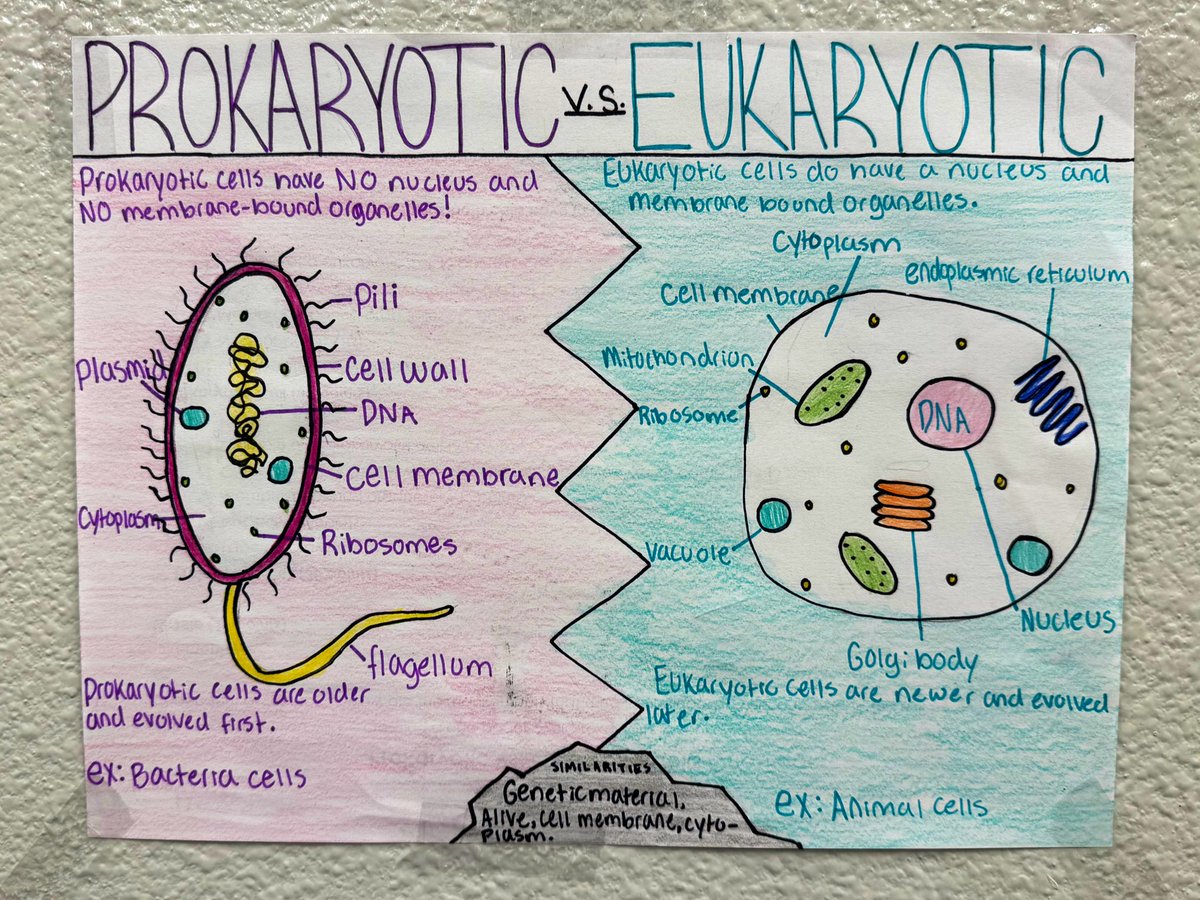 PROKARYOTIC V.S. EUKARYOTIC
Prokaryotic cells have NO nucleus and
NO membrane-bound organelles!
Pili
Plasmid
Cell wall
DNA
Cell membrane
Cytoplasm
Ribosomes
flagellum
Prokaryotic cells are older
and evolved first.
ex: Bacteria cells
Eukaryotic cells do have a nucleus and
membrane bound organelles.
Cytoplasm
endoplasmic reticulum
Cell membrane
Mitochondrion
Ribosome
DNA
Vacuole
Nucleus
Golgi body
Eukaryotic cells are newer and evolved
later.
ex: Animal cells
SIMILARITIES
Genetic material,
Alive, cell membrane, cyto-
plasm.